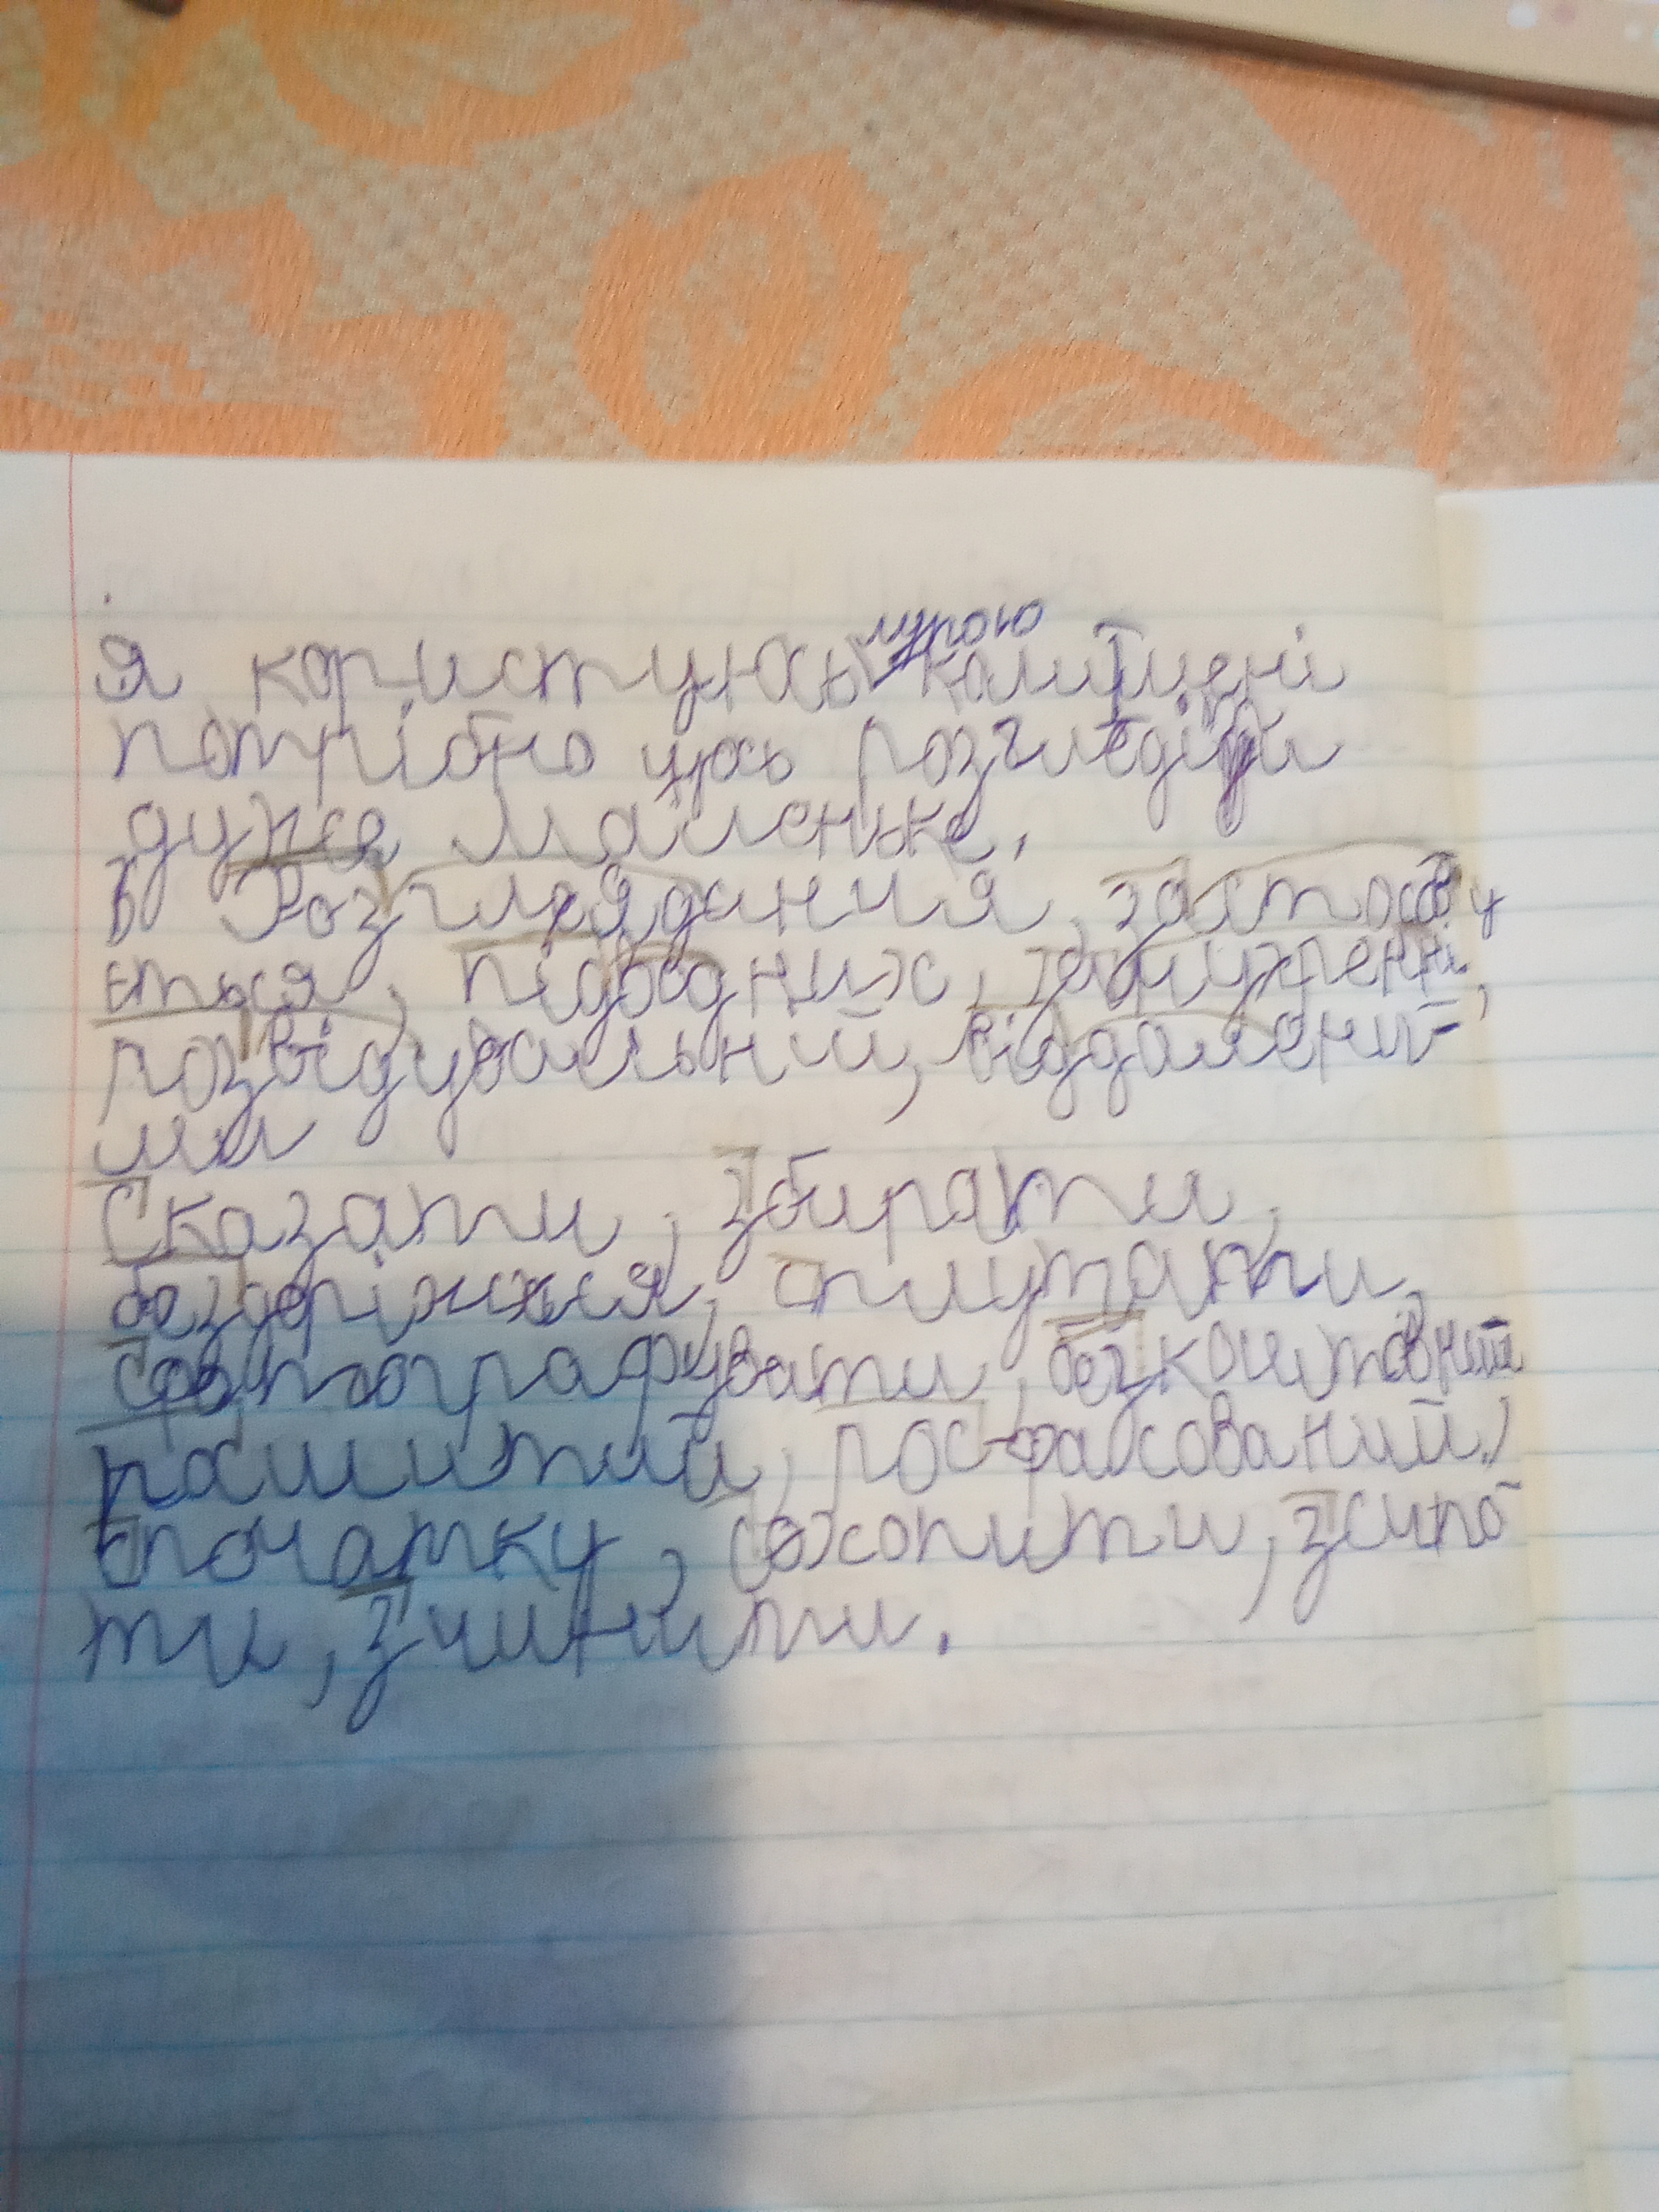 я користуюсь лупою коли мені
потрібно щось розгледіти
дуже маленьке.
В Розглядання, застосову
ється, підводних, занурень,
розвідувальній, віддалени-
ми
Сказати, збирати,
бездоріжжя, сплутати,
сфотографувати, безкоштовний
розшитий, розфасований,
спочатку, схопити, зсипа
ти, зчинити.